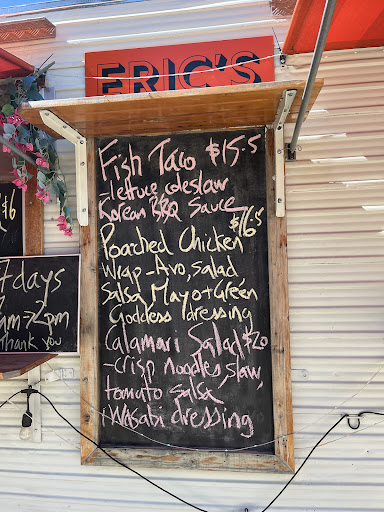 ERIC'S
Fish Taco $15.5
-lettuce coleslaw
Korean BBQ Sauce
Poached Chicken $16.5
Wrap-Avo, Salad
Salsa, Mayo + Green
Goddess dressing
Calamari Salad $20
-crisp noodles, slaw,
tomato salsa,
+Wasabi dressing
7 days
2pm
Thank you